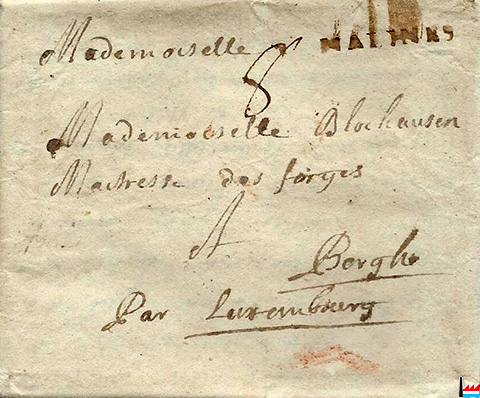 Mademoiselle
MALINES
8
Mademoiselle Blochausen
Maitresse des forges
A
Bergh
Par Luxembourg